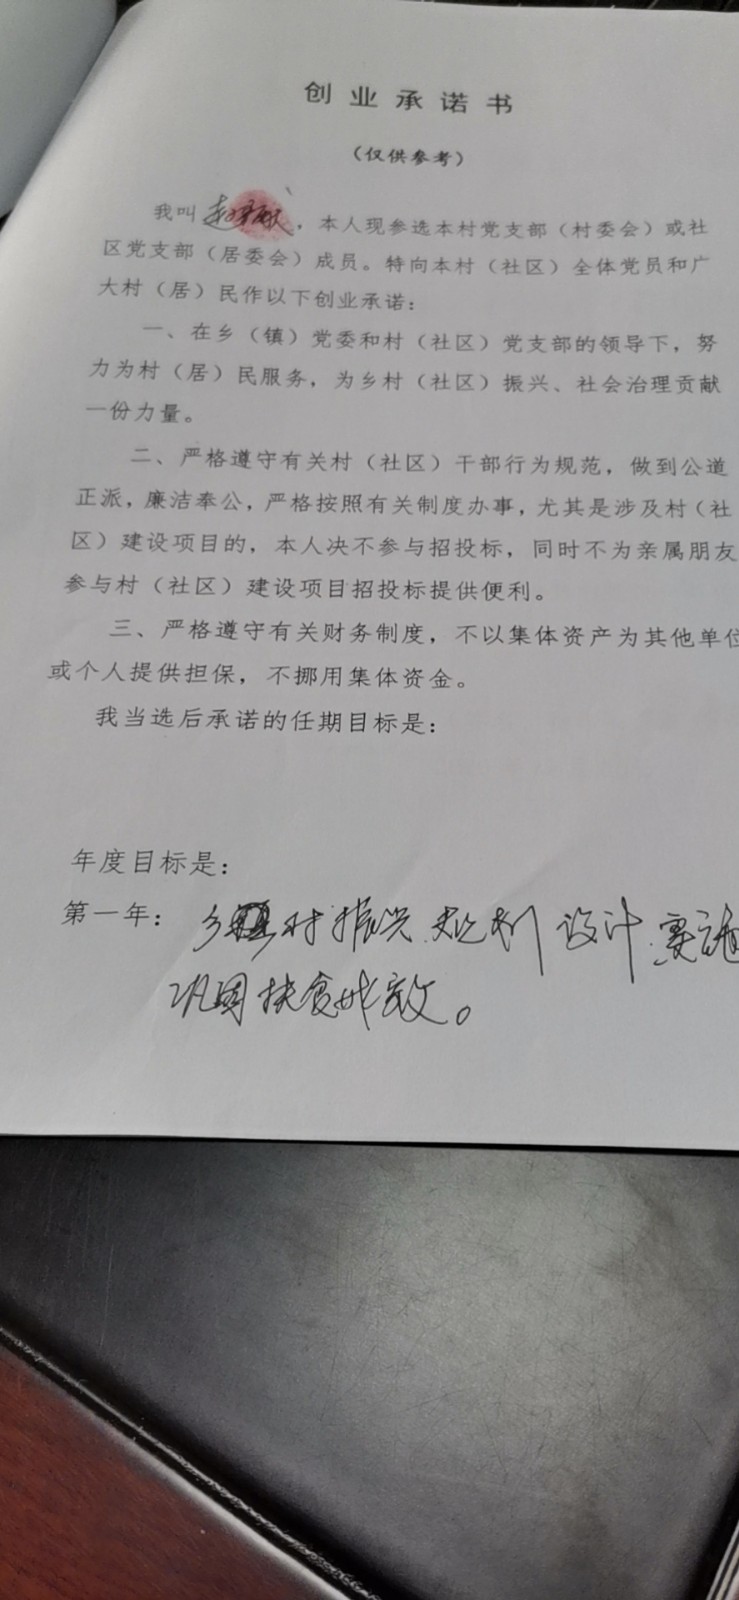 创业承诺书
（仅供参考）
我叫 ，本人现参选本村党支部（村委会）或社
区党支部（居委会）成员。特向本村（社区）全体党员和广
大村（居）民作以下创业承诺：
一、在乡（镇）党委和村（社区）党支部的领导下，努
力为村（居）民服务，为乡村（社区）振兴、社会治理贡献
一份力量。
二、严格遵守有关村（社区）干部行为规范，做到公道
正派，廉洁奉公，严格按照有关制度办事，尤其是涉及村（社
区）建设项目的，本人决不参与招投标，同时不为亲属朋友
参与村（社区）建设项目招投标提供便利。
三、严格遵守有关财务制度，不以集体资产为其他单位
或个人提供担保，不挪用集体资金。
我当选后承诺的任期目标是：
年度目标是：
第一年：乡村振兴规划设计实施
巩固扶贫成效。